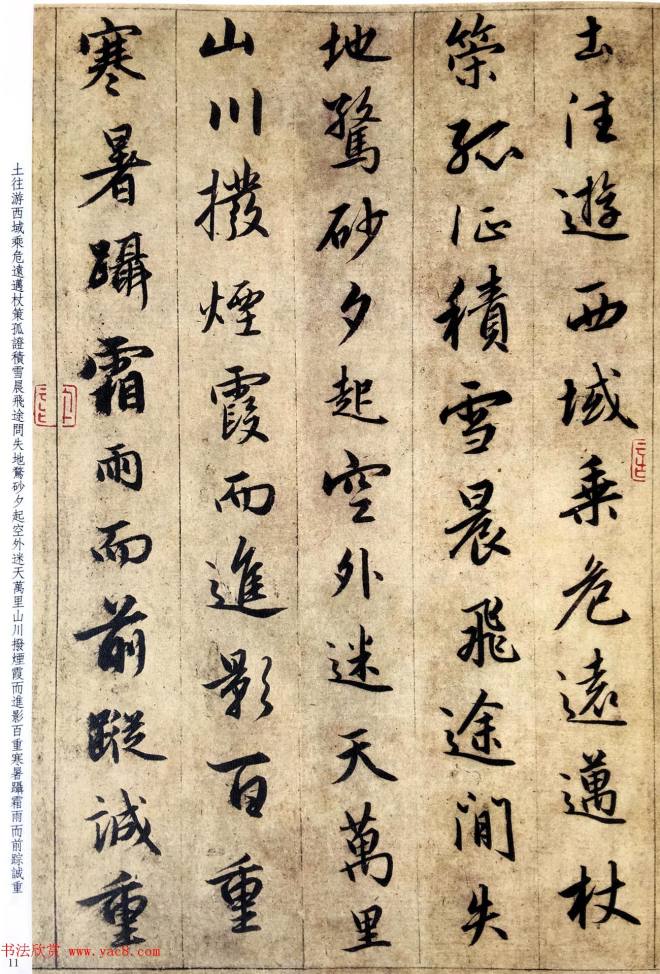 土往遊西域乗危遠邁杖
策孤征積雪晨飛途間失
地驚砂夕起空外迷天萬里
山川撥煙霞而進影百重
寒暑躡霜雨而前蹤誠重
土往游西域乘危遠邁杖策孤證積雪晨飛途問失地驚砂夕起空外迷天萬里山川撥煙霞而進影百重寒暑躡霜雨而前踪誠重
书法欣赏 www.yac8.com
11